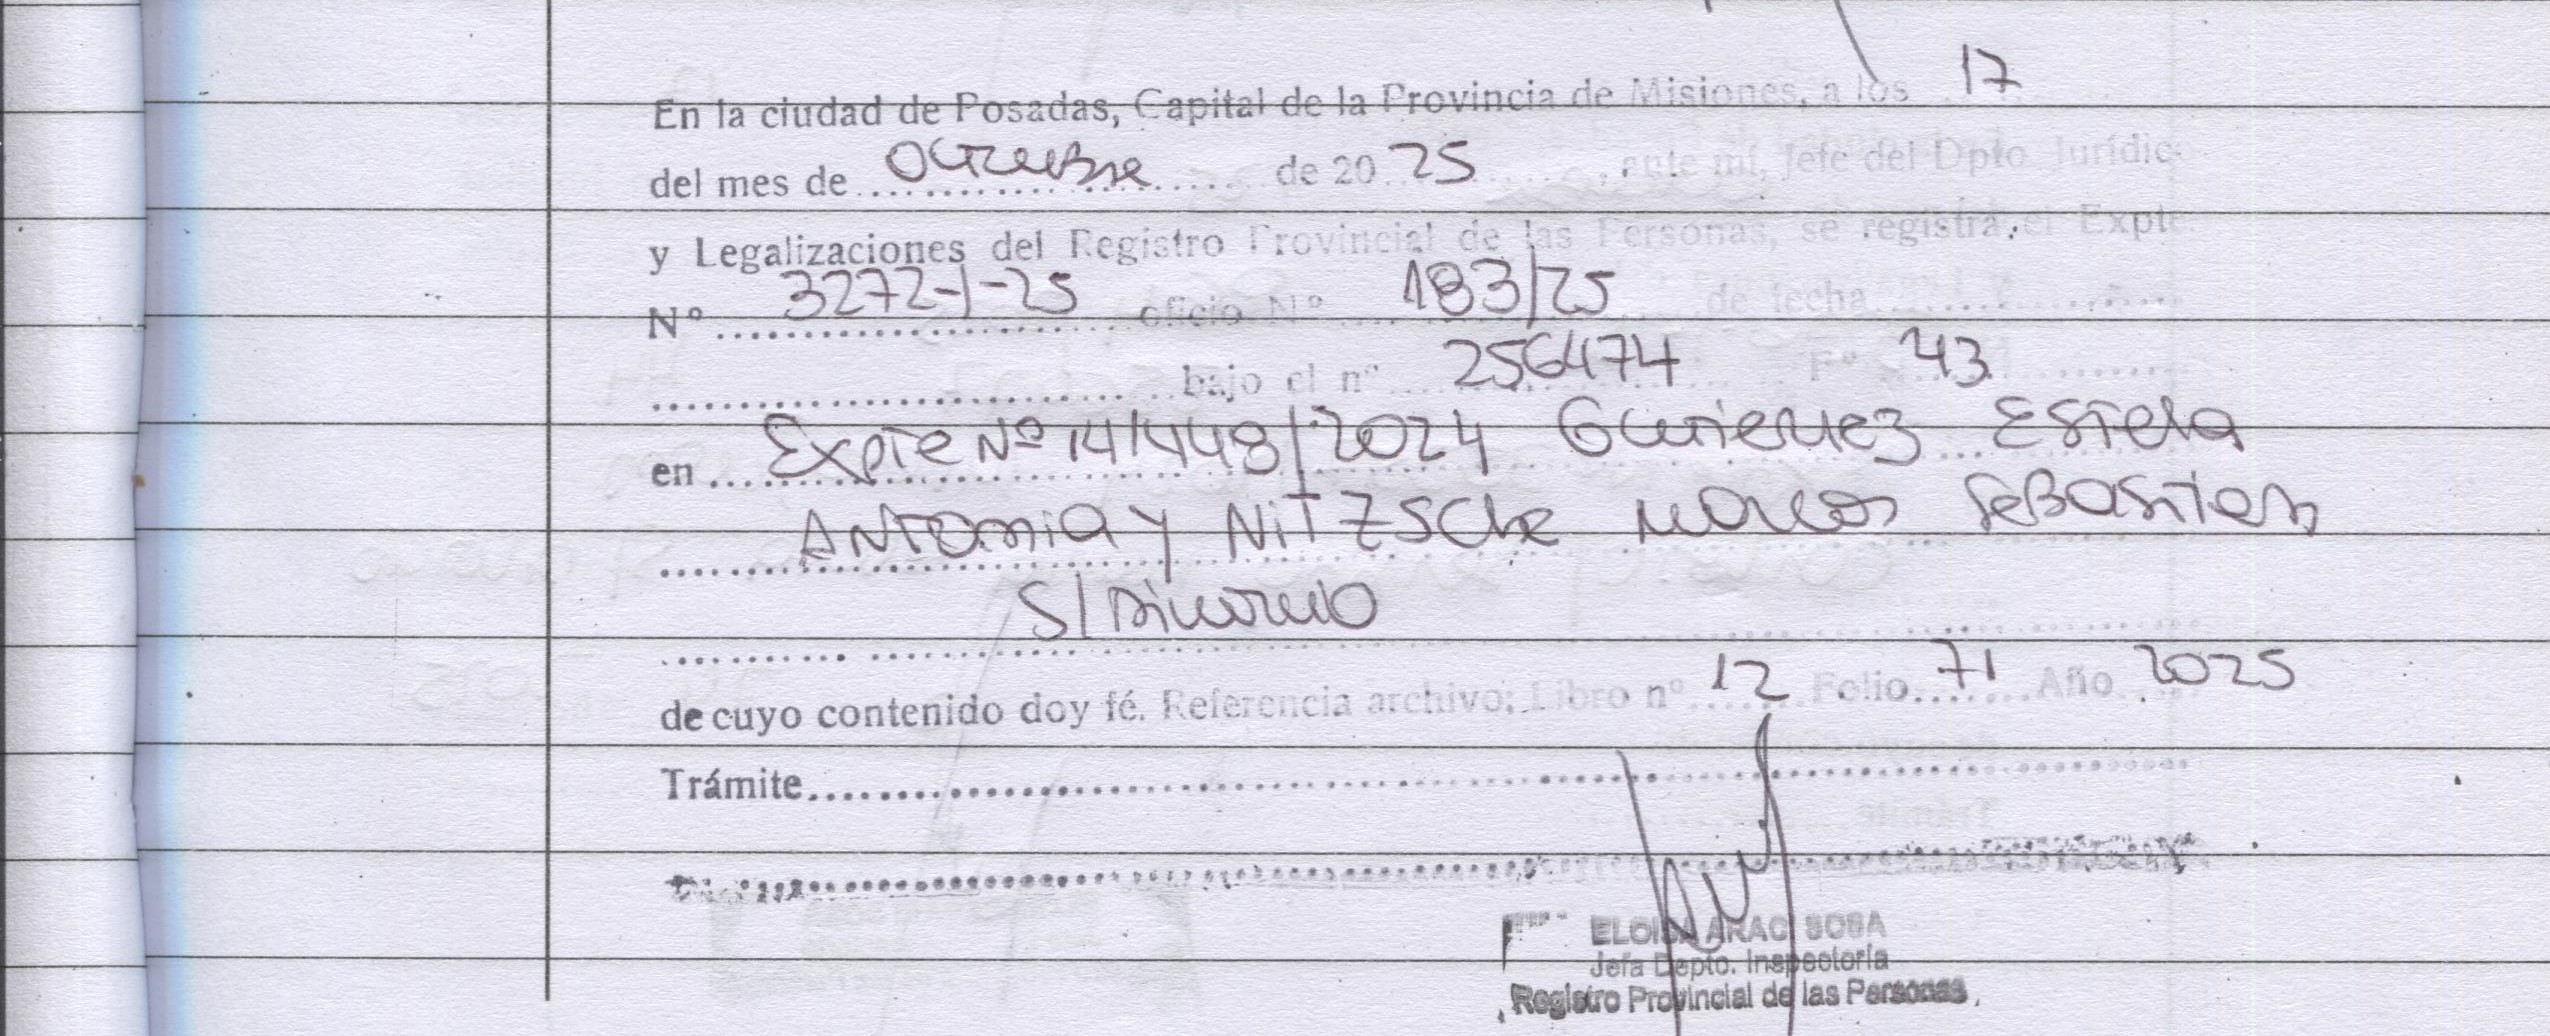 En la ciudad de Posadas, Capital de la Provincia de Misiones, a los 17
del mes de Octubre de 20 25, ante mí, Jefe del Dpto Jurídic
y Legalizaciones del Registro Provincial de las Personas, se registra el Expte
Nº 3272-1-25 oficio Nº 183/25 de fecha
bajo el nº 256474 Fº 43
en Expte Nº 141448/2024 Gutierrez Estela
Antonia y Nitzsche Marcos Sebastian
S/ Divorcio
de cuyo contenido doy fé. Referencia archivo: Libro nº 12 Folio 71 Año 2025
Trámite
ELOISA ARACI SOSA
Jefa Depto. Inspectoría
Registro Provincial de las Personas